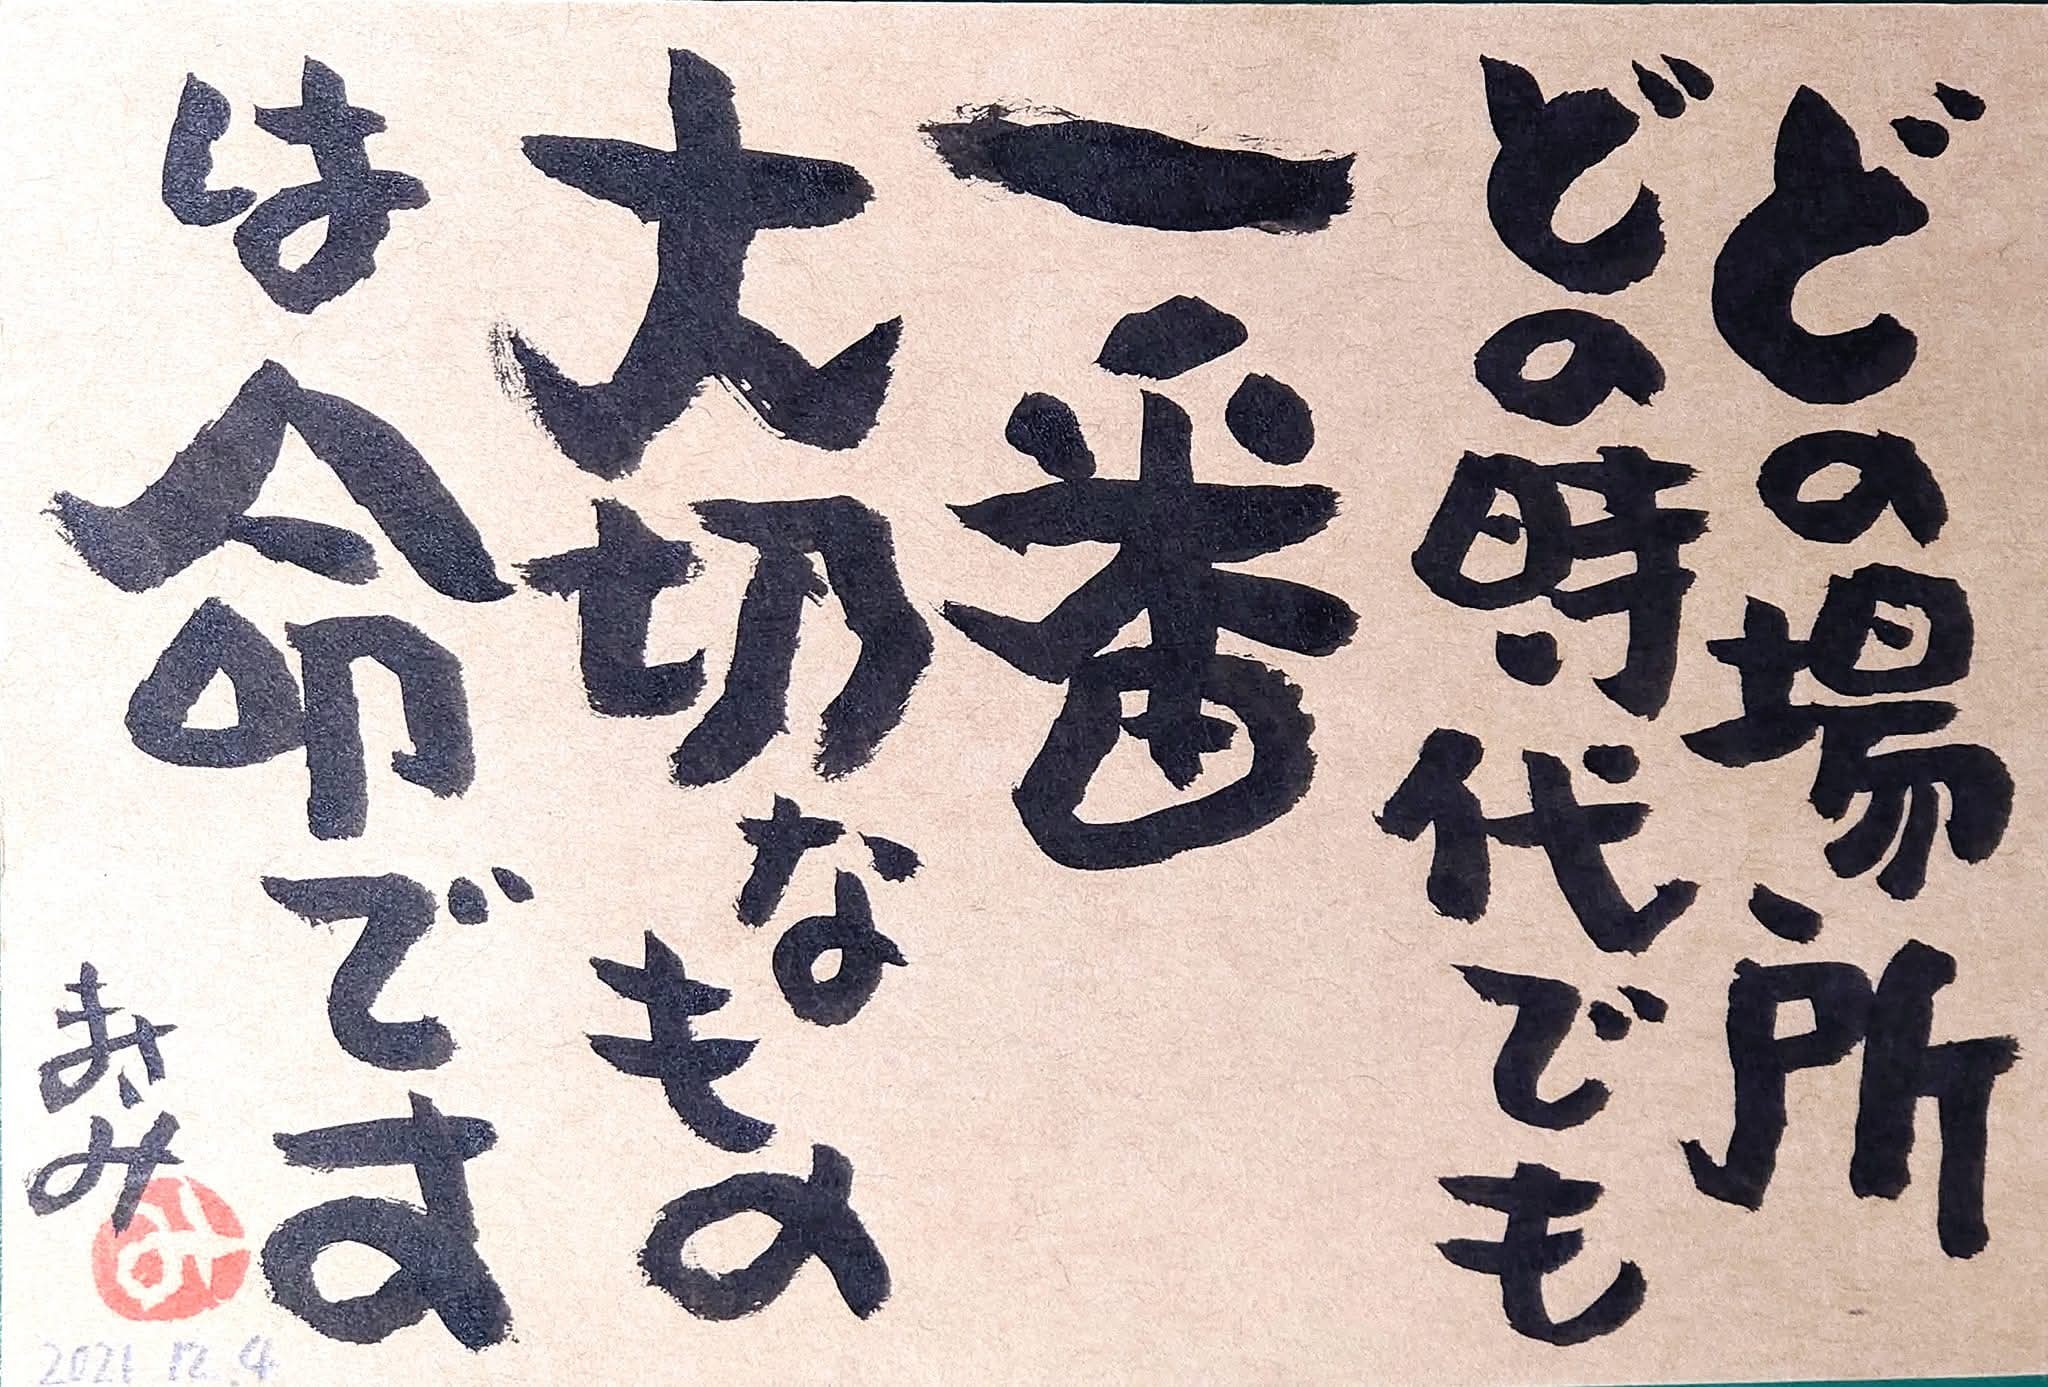 どの場所
どの時・代でも
一番
大切なもの
は命です
まさみ
み
2021 12.4